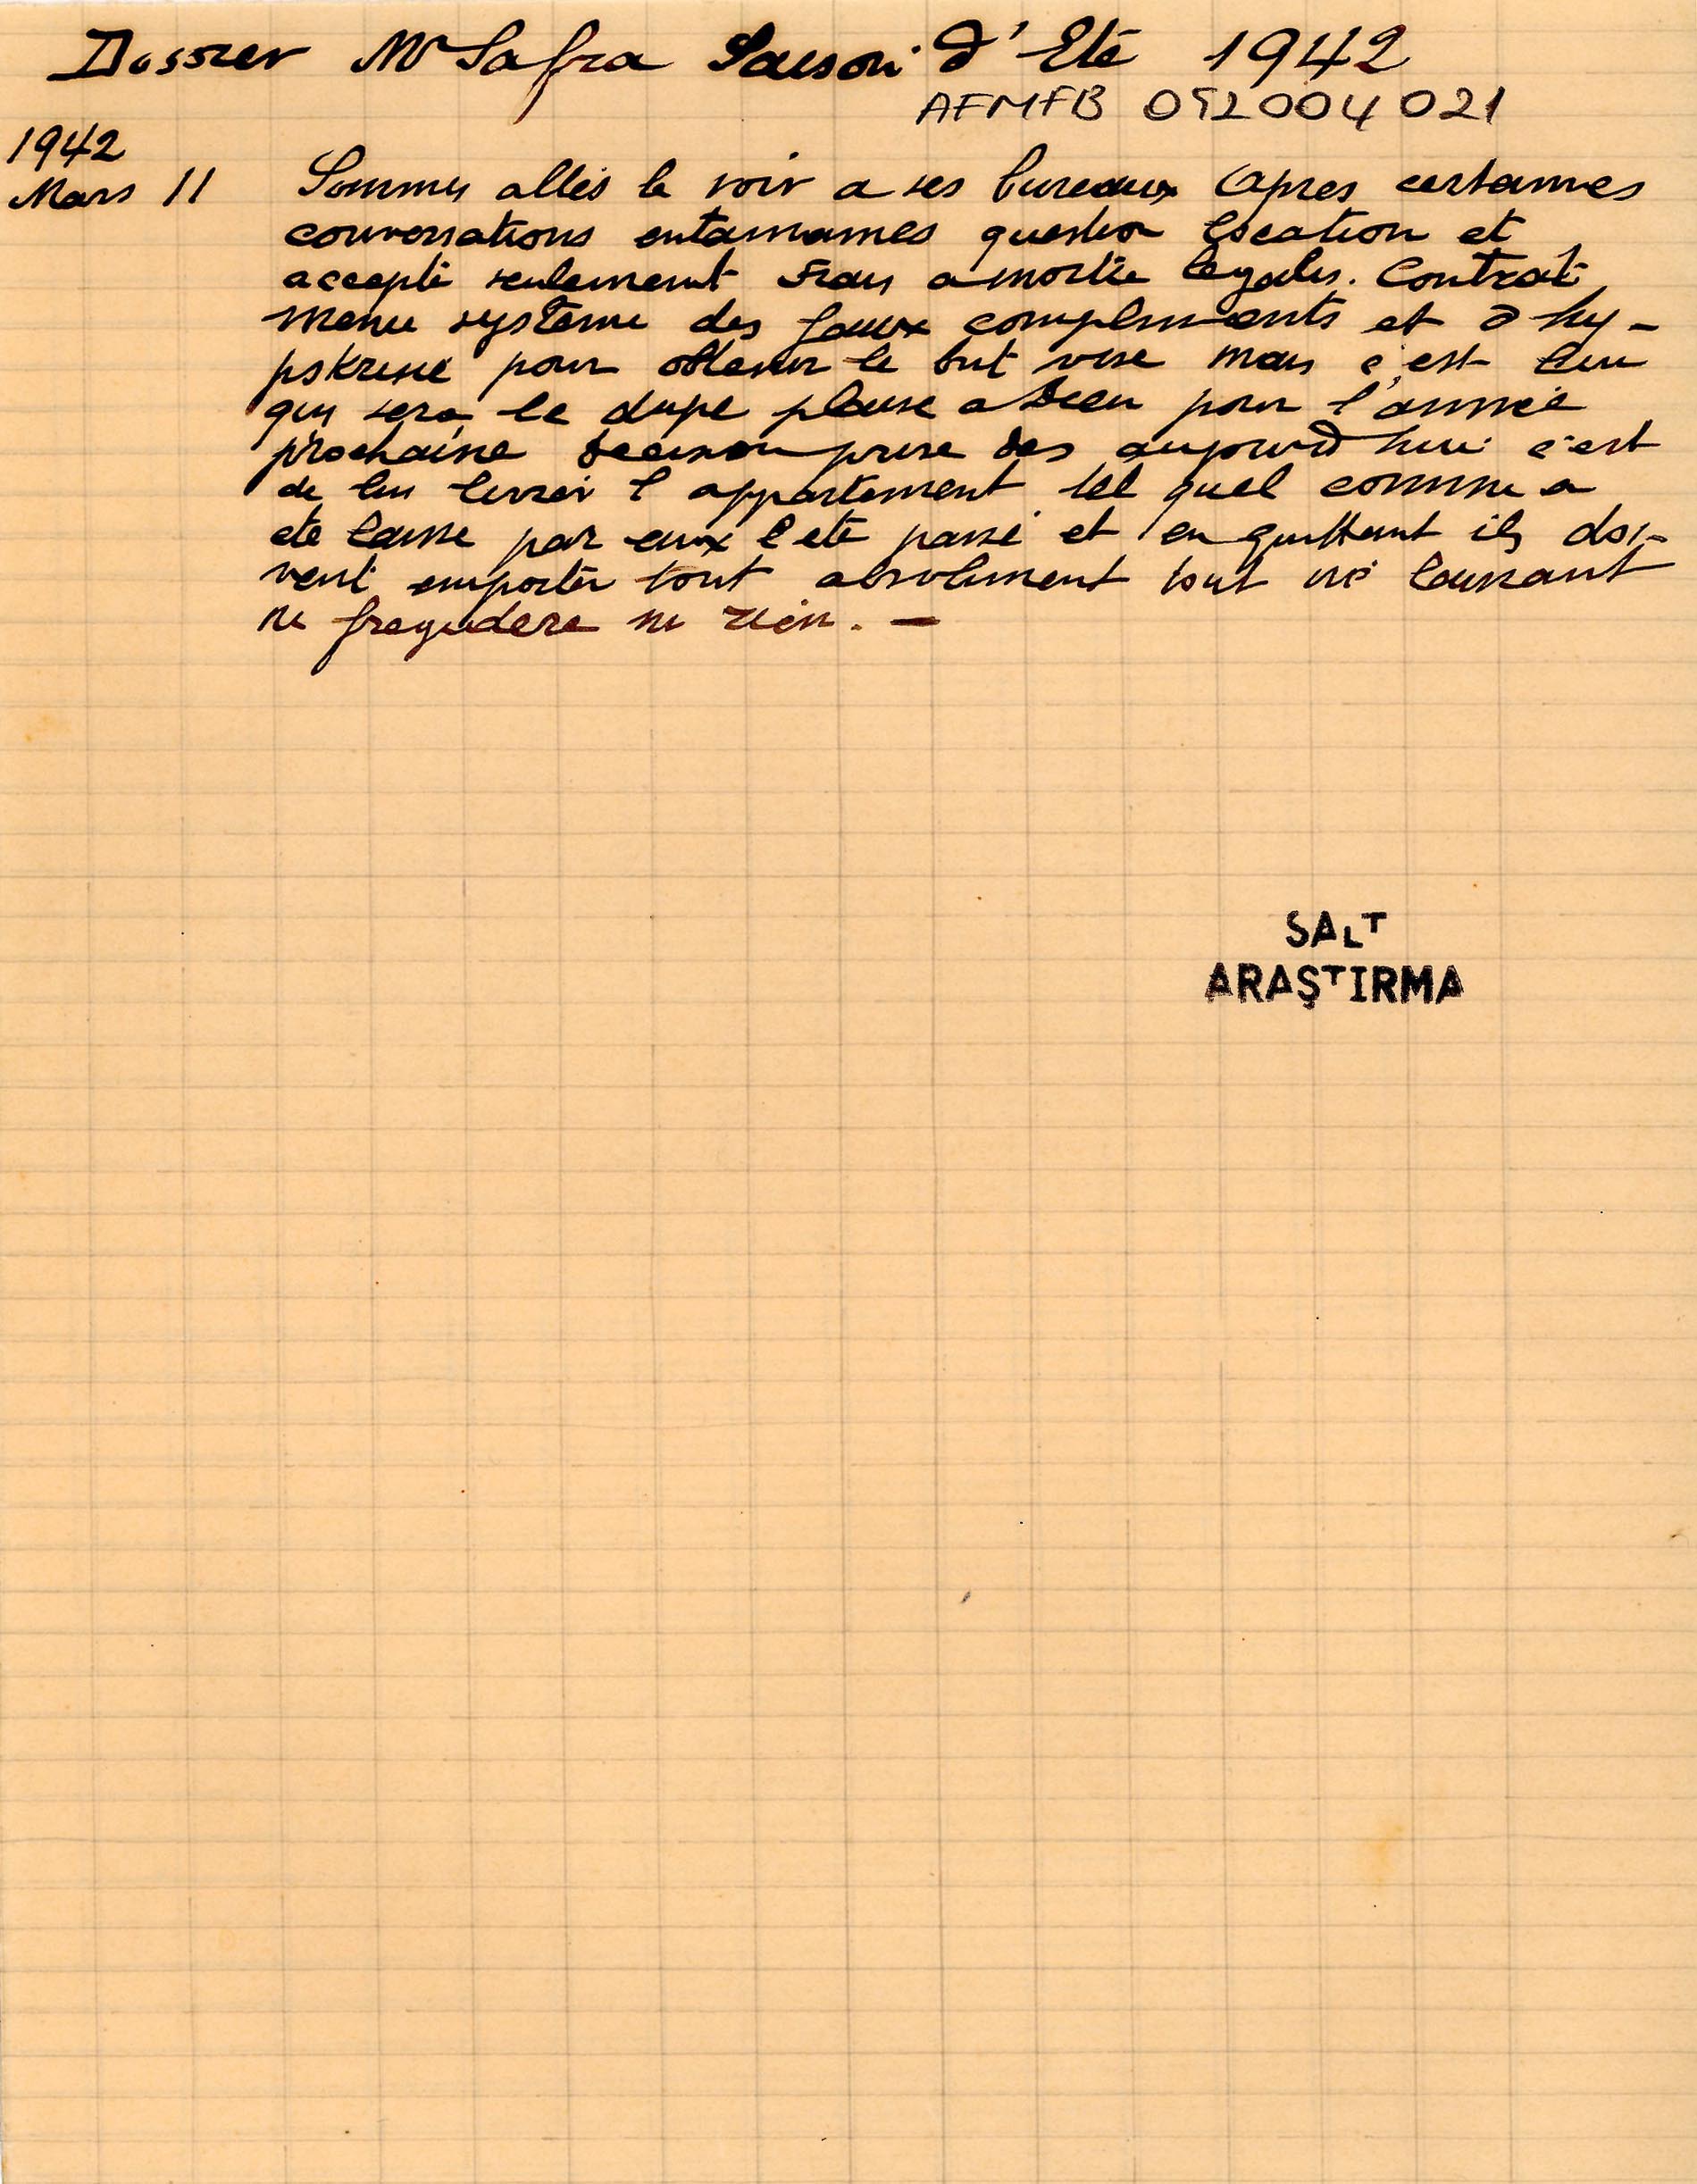 Dossier Mr Safra Saison d'Eté 1942
AFMFB 052004021
1942
Mars 11 Sommes allés le voir a ses bureaux apres certaines
conversations entamames question location et
accepté seulement Frais a moitie legales. Contrat
meme systeme des faux compliments et d hy-
pokrisie pour obtenir le but visé mais c'est lui
qui sera le dupe plaise a Dieu pour l'année
prochaine decision prise des aujourd hui c'est
de lui livrer l appartement tel quel comme a
ete laisse par eux l eté passé et en quittant ils doi-
vent emporter tout absolument tout ne laissant
ni fregidere ni rien. —
SALT
ARAŞTIRMA